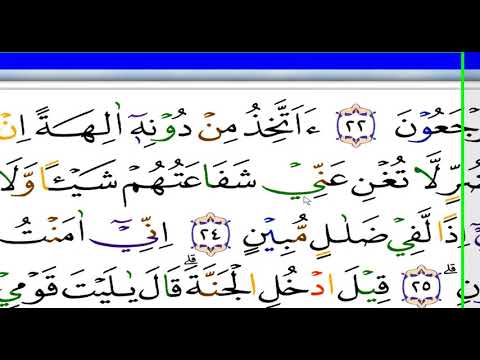 رْجَعُوْنَ ٢٢ ءَاَتَّخِذُ مِنْ دُوْنِهٖٓ اٰلِهَةً اِنْ
ضُرٍّ لَّا تُغْنِ عَنِّيْ شَفَاعَتُهُمْ شَيْـًٔا وَّلَا
اِذًا لَّفِيْ ضَلٰلٍ مُّبِيْنٍ ٢٤ اِنِّيْٓ اٰمَنْتُ
نِۗ ٢٥ قِيْلَ ادْخُلِ الْجَنَّةَ ۗقَالَ يٰلَيْتَ قَوْمِيْ